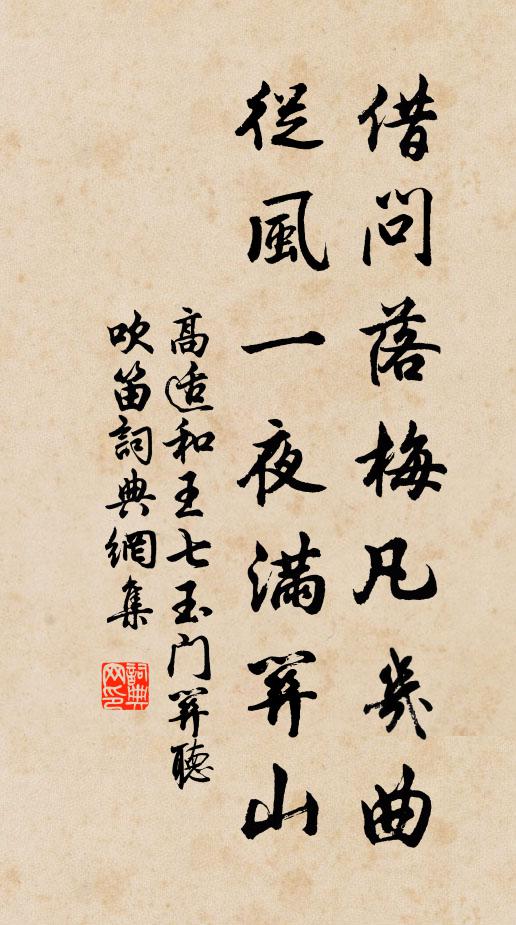 借問落梅凡幾曲
從風一夜滿關山
高适和王七玉门關聽
吹笛詞典網集
詞典网印